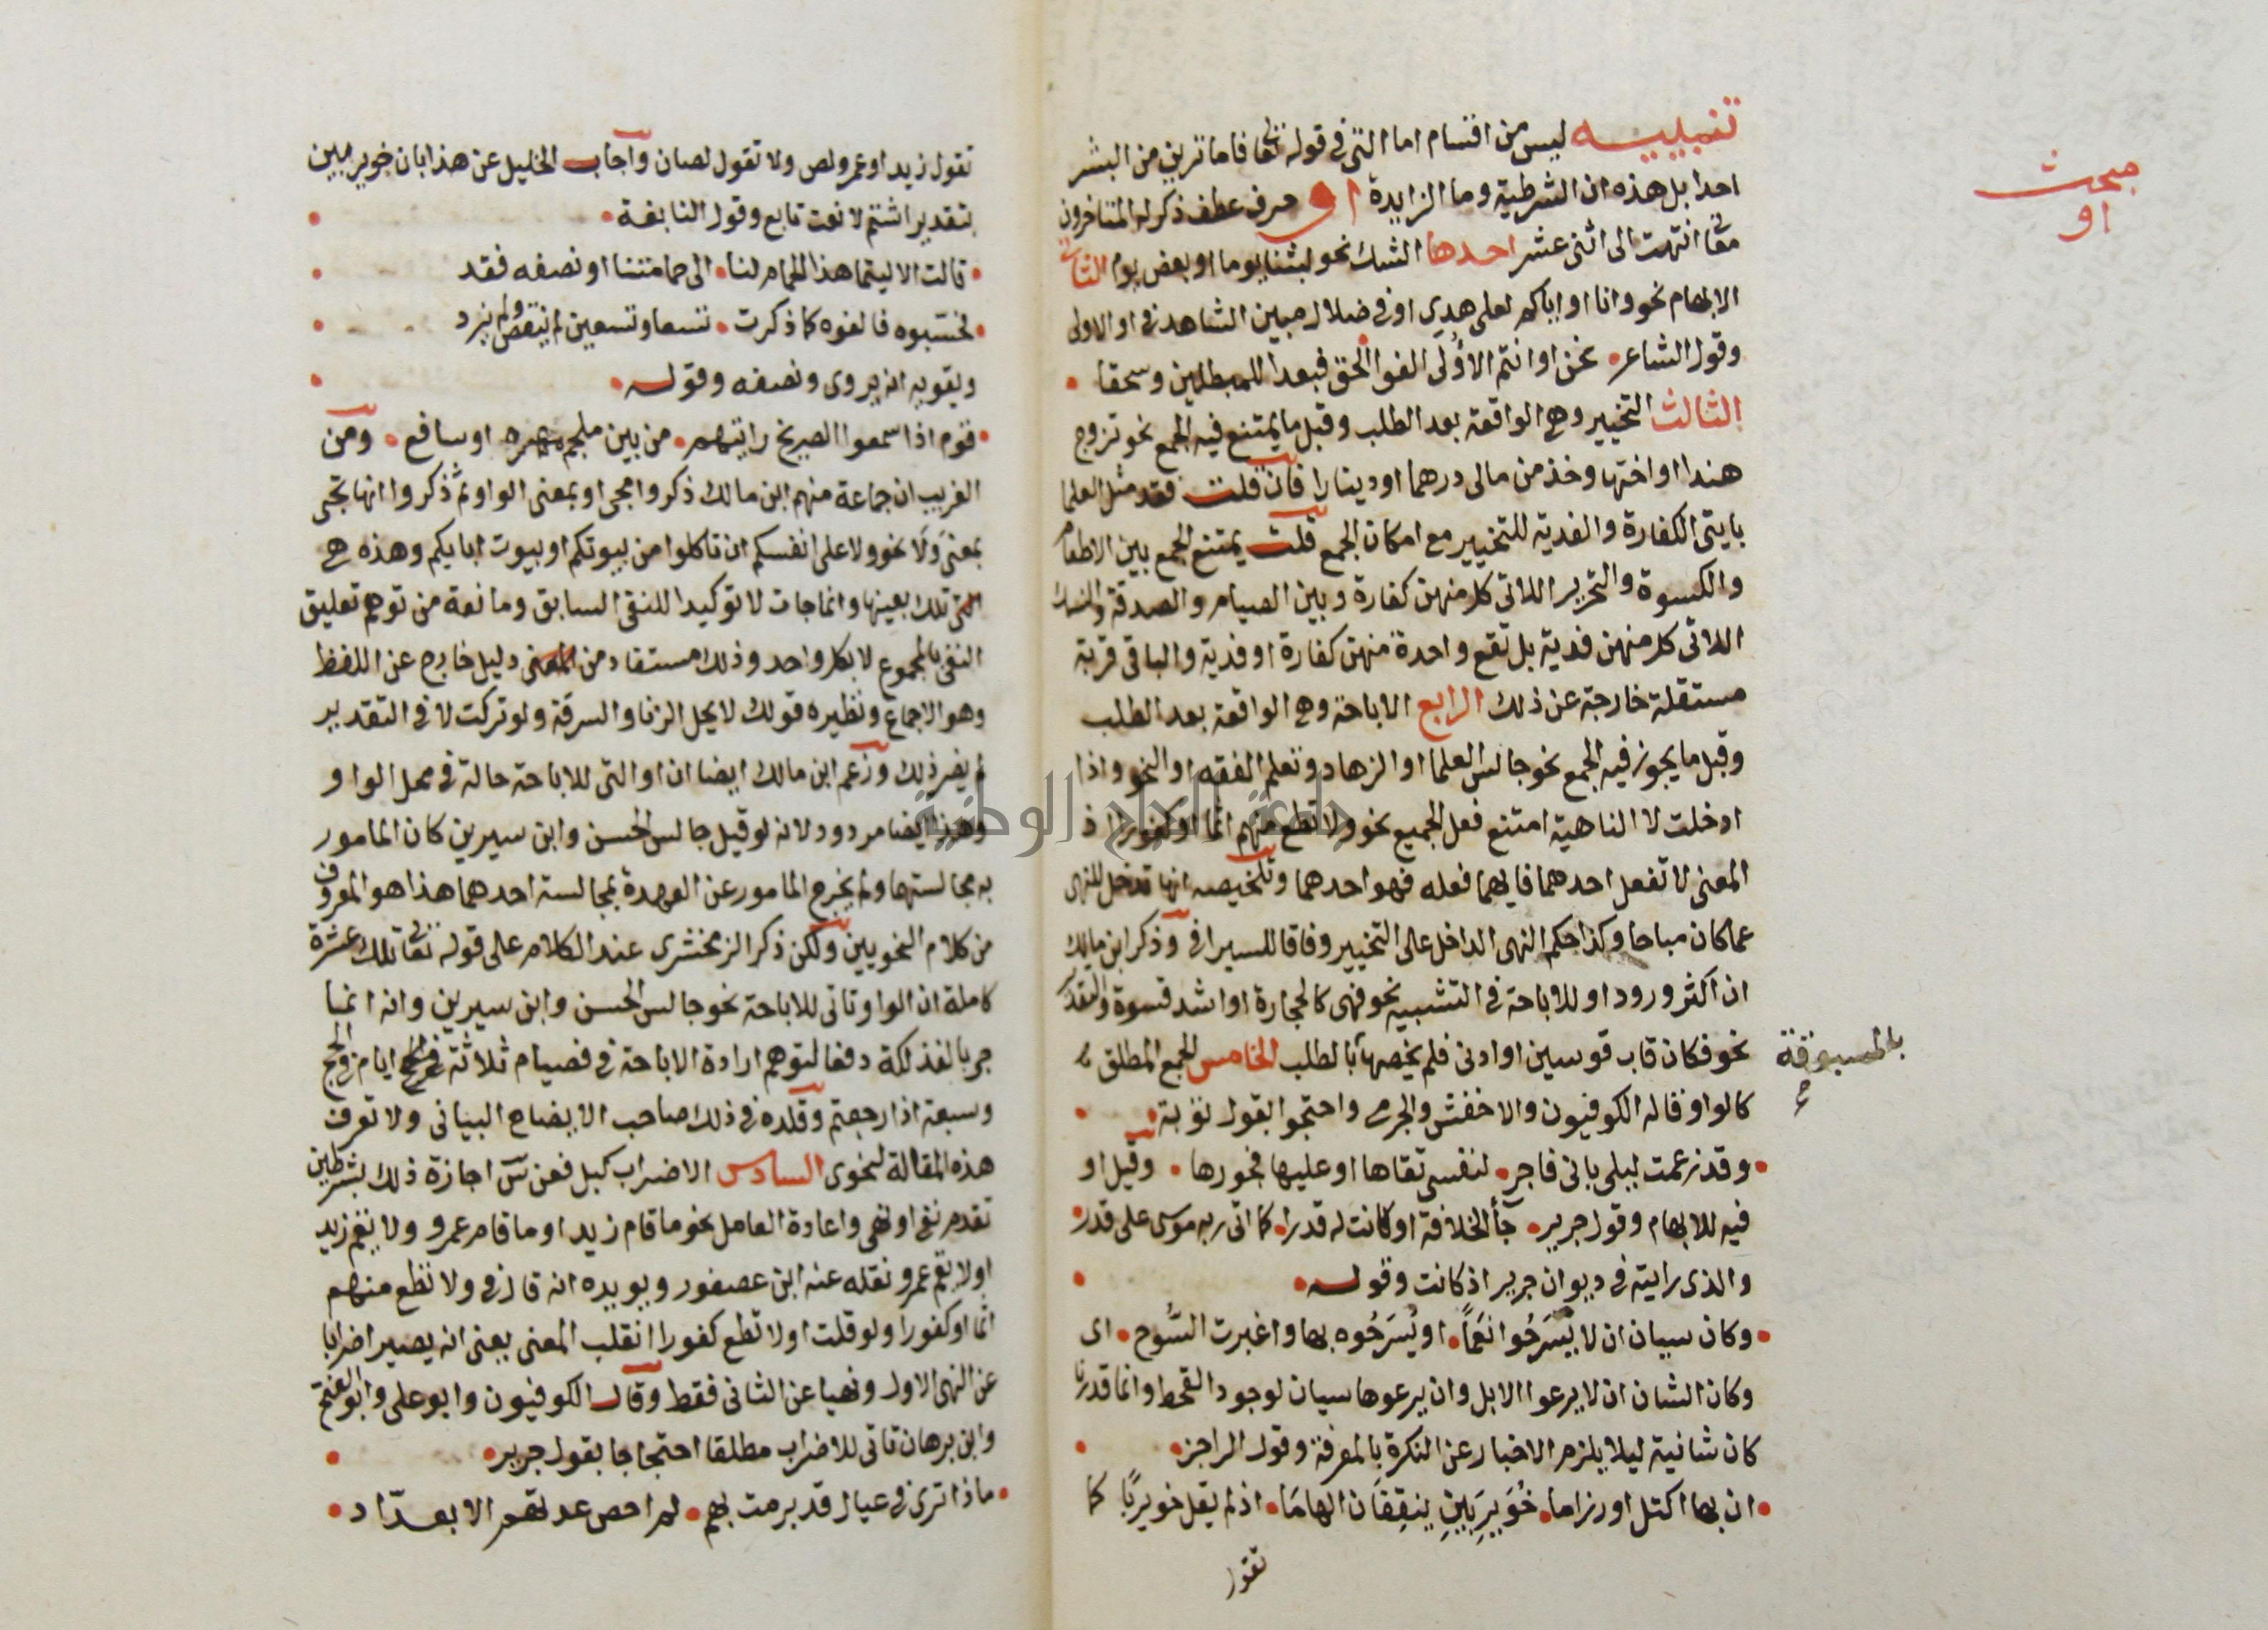 مبحث
او
تنبيه ليس من اقسام اما التى فى قوله تعالى فاما ترين من البشر
احدا بل هذه ان الشرطية وما الزايدة او حرف عطف ذكر له المتاخرون
معانى انتهت الى اثنى عشر احدها الشك نحو لبثنا يوما او بعض يوم الثانى
الابهام نحو وانا او اياكم لعلى هدى او فى ضلال مبين الشاهد فى او الاولى
وقول الشاعر • نحن او انتم الاُولَى الفوا الحق فبعدا للمبطلين وسحقا •
الثالث التخيير وهى الواقعة بعد الطلب وقبل ما يمتنع فيه الجمع نحو تزوج
هندا او اختها وخذ من مالى درهما او دينارا فان قلت فقد مثل العلما
بايتى الكفارة والفدية للتخيير مع امكان الجمع قلت يمتنع الجمع بين الاطعام
والكسوة والتحرير اللاتى كل منهن كفارة وبين الصيام والصدقة والنسك
اللاتى كل منهن فدية بل تقع واحدة منهن كفارة او فدية والباقى قربة
مستقلة خارجة عن ذلك الرابع الاباحة وهى الواقعة بعد الطلب
وقبل ما يجوز فيه الجمع نحو جالس العلما او الزهاد وتعلم الفقه او النحو واذا
ادخلت لا الناهية امتنع فعل الجميع نحو ولا تطع منهم اثما او كفورا اذ
المعنى لا تفعل احدهما فايهما فعله فهو احدهما وتلخيصه انها تدخل للنهى
عما كان مباحا وكذا حكم النهى الداخل على التخيير وفاقا للسيرافى وذكر ابن مالك
ان اكثر ورود او للاباحة فى التشبيه نحو فهى كالحجارة او اشد قسوة والتقدير
نحو فكان قاب قوسين او ادنى فلم يخصها بالطلب الخامس الجمع المطلق
بالمسبوقة
كالواو قاله الكوفيون والاخفش والجرمى واحتجوا بقول توبة •
• وقد زعمت ليلى بانى فاجر • لنفسى تقاها او عليها فجورها • وقيل او
فيه للابهام وقول جرير • جآ الخلافة او كانت له قدرا • كما اتى ربه موسى على قدر •
والذى رايته فى ديوان جرير اذ كانت وقوله •
• وكان سيان ان لا يَسرَحُوا نَعَماً • او يُسَرحُوه بها واغبرت السُّوح • اى
وكان الشان ان لا يرعوا الابل وان يرعوها سيان لوجود القحط وانما قدرنا
كان شانية ليلا يلزم الاخبار عن النكرة بالمعرفة وقول الراجز •
• ان بها اكتل او رزاما • خُوَيرِبَينِ ينقِفَان الهامَا • اذ لم يقل خويربًا كما
تقول
تقول زيد او عمرو لص ولا تقول لصان واجاب الخليل عن هذا بان خويربين
بتقدير اشتم لا نعت تابع وقول النابغة •
• قالت الا ليتما هذا الحمام لنا • الى حمامتنا او نصفه فقد
• فحسبوه فالفوه كما ذكرت • تسعا وتسعين لم ينقص ولم يزد
ويقويه انه يروى ونصفه وقوله •
• قوم اذا سمعوا الصريخ رايتهم • من بين ملجم مهره او سافع • ومن
الغريب ان جماعة منهم ابن مالك ذكروا مجى او بمعنى الواو ثم ذكروا انها تجى
بمعنى وَلَا نحو ولا على انفسكم ان تاكلوا من بيوتكم او بيوت ابايكم وهذه هى
تلك بعينها وانما جات لا توكيدا للنفى السابق ومانعة من توهم تعليق
النفى بالمجموع لا بكل واحد وذلك مستفاد من دليل خارج عن اللفظ
وهو الاجماع ونظيره قولك لا يحل الزنا والسرقة ولو تركت لا فى التقدير
لم يضر ذلك وزعم ابن مالك ايضا ان او التى للاباحة حالة فى محل الواو
وهذا ايضا مردود لانه لو قيل جالس الحسن وابن سيرين كان المامور
به مجالستهما ولم يخرج المامور عن العهدة بمجالسة احدهما هذا هو المعروف
من كلام النحويين ولكن ذكر الزمخشرى عند الكلام على قوله تعالى تلك عشرة
كاملة ان الواو تاتى للاباحة نحو جالس الحسن وابن سيرين وانه انما
جى بالفذلكة دفعا لتوهم ارادة الاباحة فى فصيام ثلاثة ايام فى الحج
وسبعة اذا رجعتم وقلده فى ذلك صاحب الايضاح البيانى ولا تعرف
هذه المقالة لنحوى السادس الاضراب كبل فعن س اجازة ذلك بشرطين
تقدم نفى او نهى واعادة العامل نحو ما قام زيد او ما قام عمرو ولا يقم زيد
او لا يقم عمرو نقله عنه ابن عصفور ويويده انه قال فى ولا تطع منهم
اثما او كفورا ولو قلت او لا تطع كفورا انقلب المعنى يعنى انه يصير اضرابا
عن النهى الاول ونهيا عن الثانى فقط وقال الكوفيون وابو على وابو الفتح
وابن برهان تاتى للاضراب مطلقا احتجاجا بقول جرير •
• ماذا ترى فى عيال قد برمت بهم • لم احص عدتهم الا بعدّاد •
جامعة النجاح الوطنية